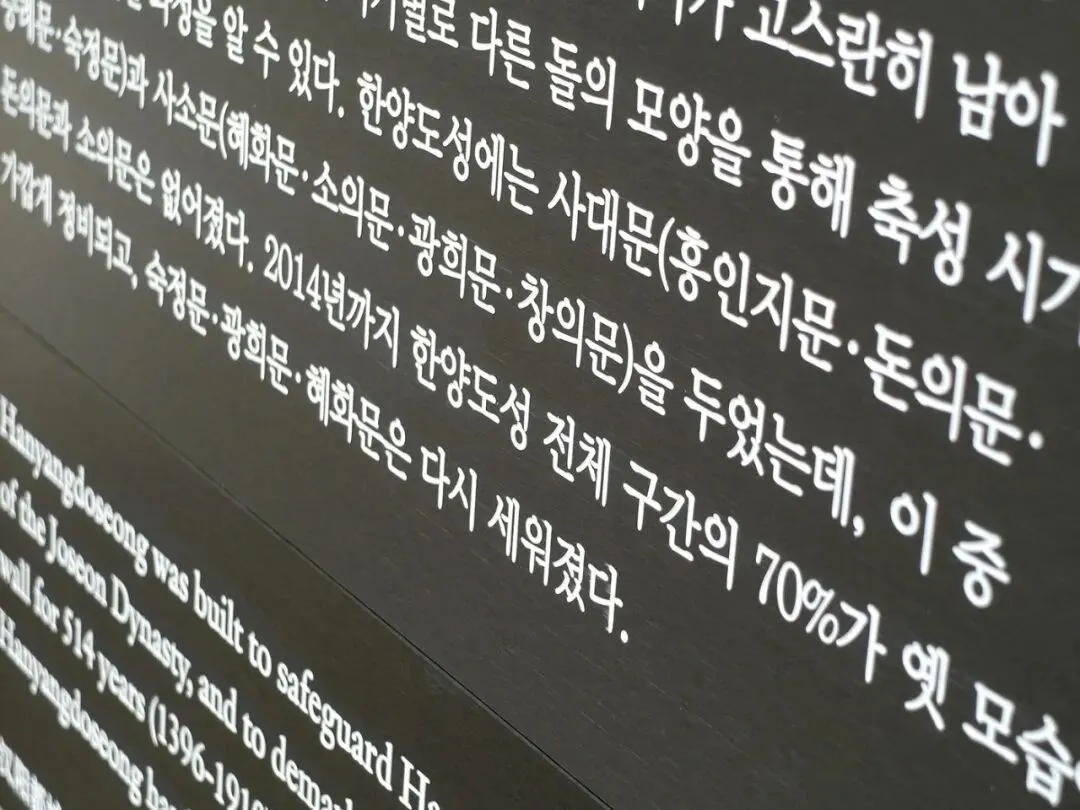 가 고스란히 남아
다른 돌의 모양을 통해 축성 시기
알 수 있다. 한양도성에는 사대문(흥인지문·돈의문·
숭례문·숙정문)과 사소문(혜화문·소의문·광희문·창의문)을 두었는데, 이 중
돈의문과 소의문은 없어졌다. 2014년까지 한양도성 전체 구간의 70%가 옛 모습
가깝게 정비되고, 숙정문·광희문·혜화문은 다시 세워졌다.
Hanyangdoseong was built to safeguard
of the Joseon Dynasty, and to
wall for 514 years (1396-1910
Hanyangdoseong